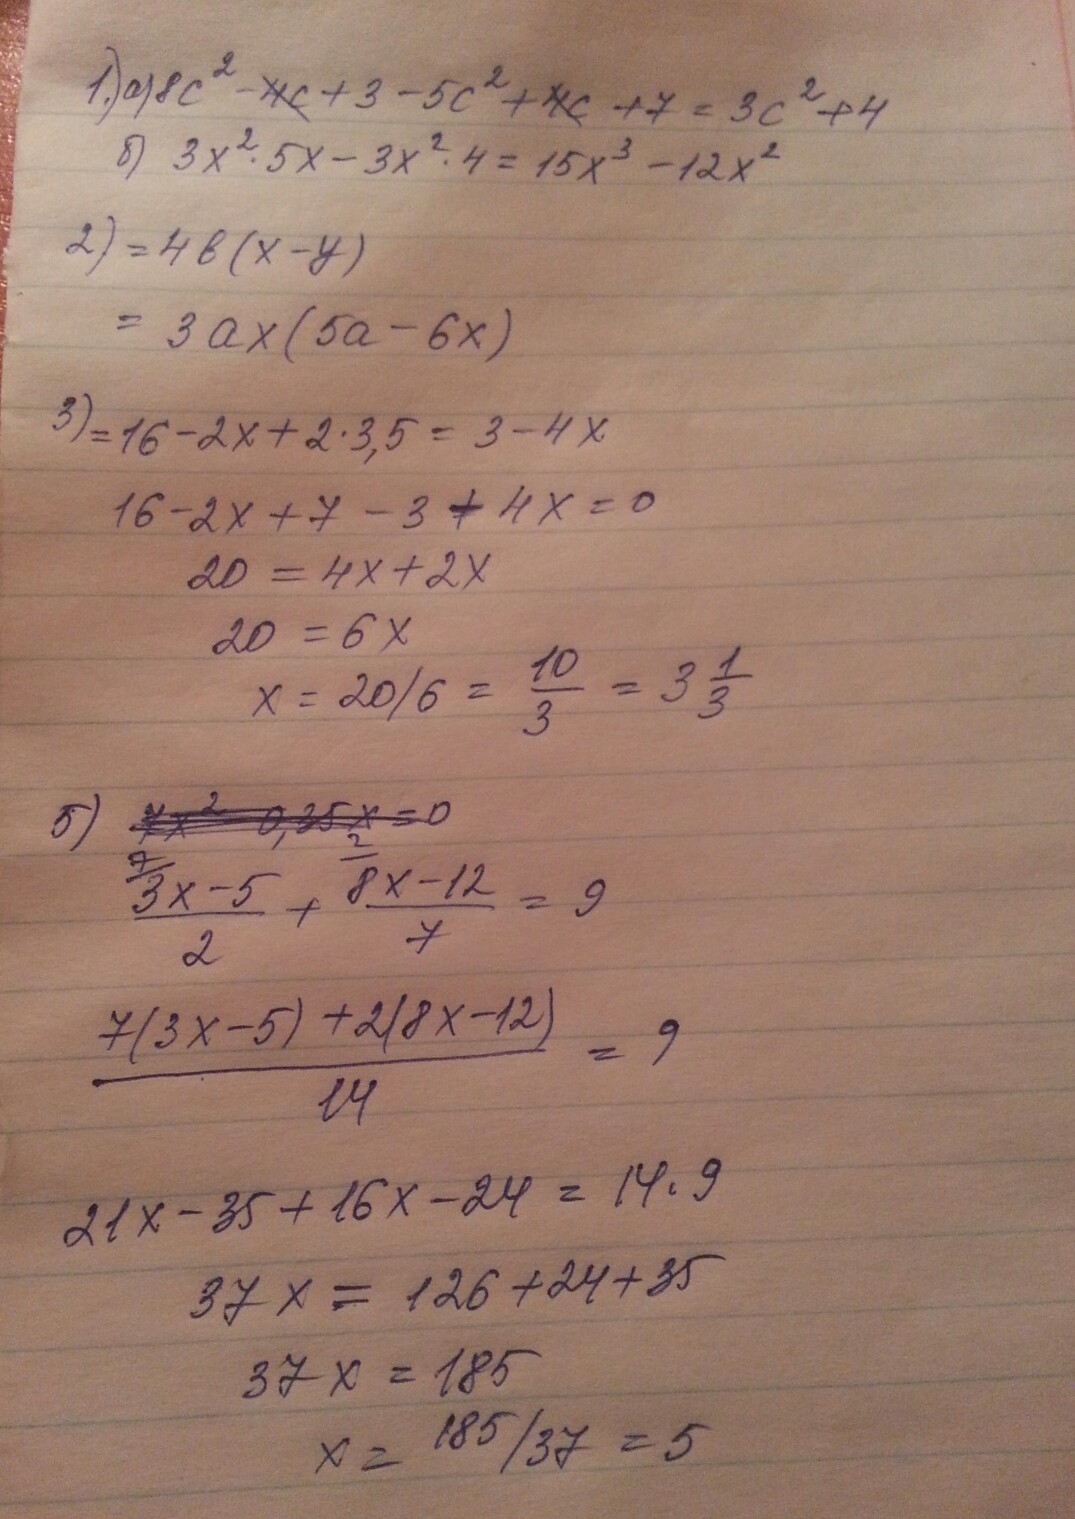 1.) а) 8c² - 4c + 3 - 5c² + 4c + 7 = 3c² + 4
б) 3x² · 5x - 3x² · 4 = 15x³ - 12x²
2) = 4в(x - y)
= 3ax(5a - 6x)
3) = 16 - 2x + 2·3,5 = 3 - 4x
16 - 2x + 7 - 3 + 4x = 0
20 = 4x + 2x
20 = 6x
x = 20/6 = 10/3 = 3 1/3
5) 7x² 0,35x = 0
7/ 3x - 5 / 2 + 2/ 8x - 12 / 7 = 9
7(3x - 5) + 2(8x - 12) / 14 = 9
21x - 35 + 16x - 24 = 14 · 9
37x = 126 + 24 + 35
37x = 185
x = 185/37 = 5